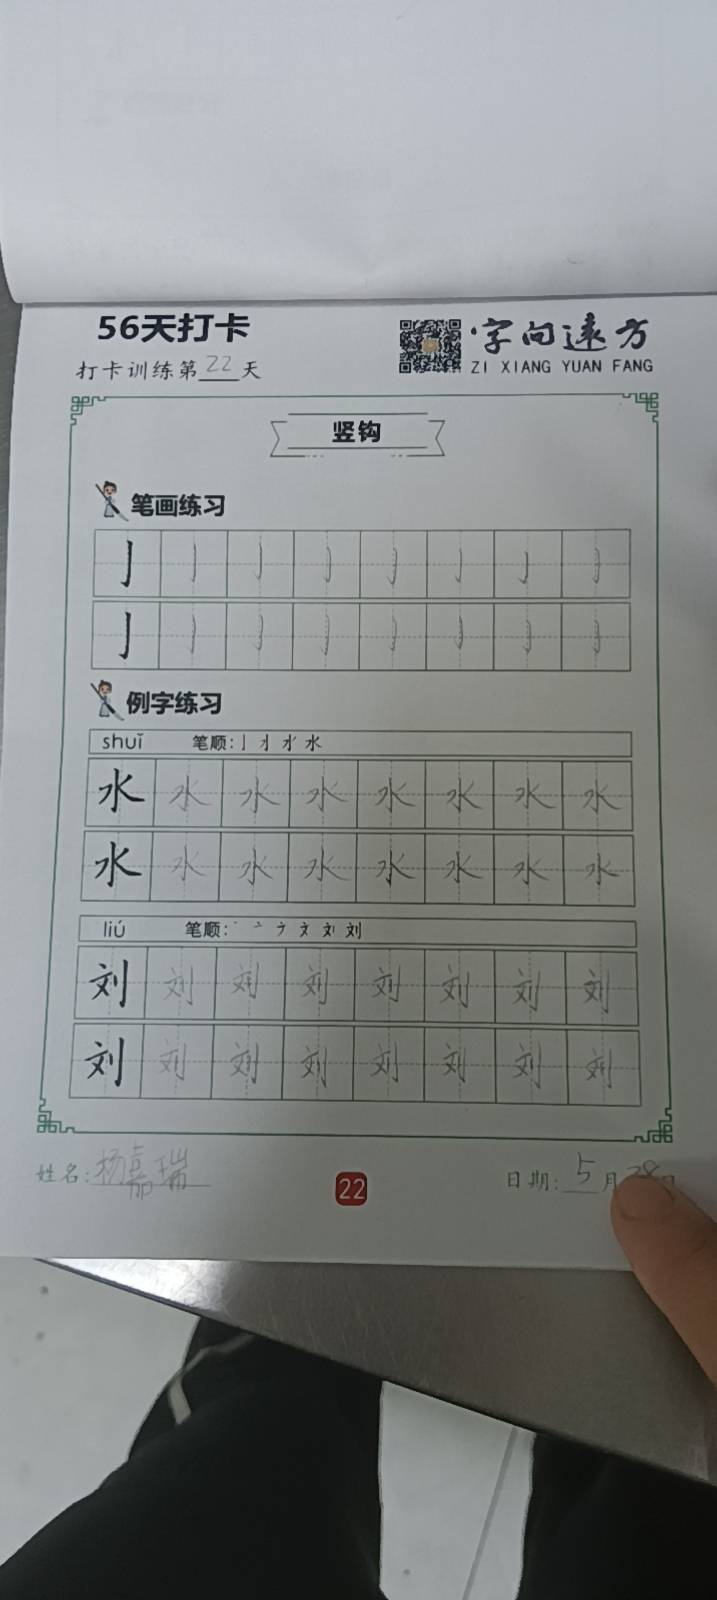 56天打卡
字向远方
打卡训练第22天
ZI XIANG YUAN FANG
竖钩
笔画练习
亅 亅 亅 亅 亅 亅 亅 亅
亅 亅 亅 亅 亅 亅 亅 亅
例字练习
shuǐ 笔顺:
水 水 水 水 水 水 水 水
水 水 水 水 水 水 水 水
liú 笔顺:
刘 刘 刘 刘 刘 刘 刘 刘
刘 刘 刘 刘 刘 刘 刘 刘
姓名:杨嘉瑞
22
日期:5月28日